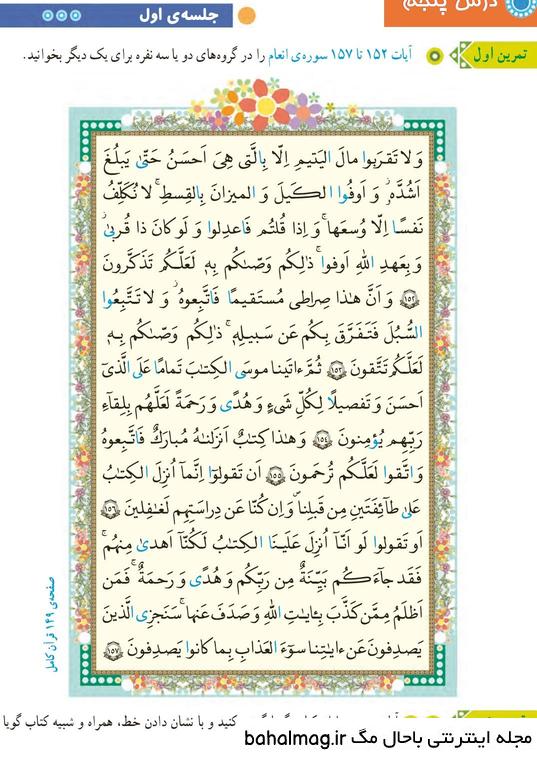 درس پنجم
جلسه‌ی اول
تمرین اول
آیات ۱۵۲ تا ۱۵۷ سوره‌ی انعام را در گروه‌های دو یا سه نفره برای یک دیگر بخوانید.
وَ لا تَقرَبوا مالَ الیَتیمِ اِلّا بِالَّتی هِیَ اَحسَنُ حَتّیٰ یَبلُغَ
اَشُدَّهٗ ۖ وَ اَوفُوا الکَیلَ وَ المیزانَ بِالقِسطِ ۖ لا نُکَلِّفُ
نَفسًا اِلّا وُسعَها ۖ وَ اِذا قُلتُم فَاعدِلوا وَ لَو کانَ ذا قُربیٰ ۖ
وَ بِعَهدِ اللهِ اَوفوا ۚ ذٰلِکُم وَصّٰىکُم بِهٖ لَعَلَّکُم تَذَکَّرونَ
۱۵۲ وَ اَنَّ هٰذا صِراطی مُستَقیمًا فَاتَّبِعوهُ ۖ وَ لا تَتَّبِعُوا
السُّبُلَ فَتَفَرَّقَ بِکُم عَن سَبیلِهٖ ۚ ذٰلِکُم وَصّٰىکُم بِهٖ
لَعَلَّکُم تَتَّقونَ ۱۵۳ ثُمَّ ءاتَینا موسَی الکِتٰبَ تَمامًا عَلَی الَّذیٓ
اَحسَنَ وَ تَفصیلًا لِکُلِّ شَیءٍ وَ هُدًی وَ رَحمَةً لَعَلَّهُم بِلِقاءِ
رَبِّهِم یُؤمِنونَ ۱۵۴ وَ هٰذا کِتٰبٌ اَنزَلنٰهُ مُبارَکٌ فَاتَّبِعوهُ
وَ اتَّقوا لَعَلَّکُم تُرحَمونَ ۱۵۵ اَن تَقولوٓا اِنَّمآ اُنزِلَ الکِتٰبُ
عَلیٰ طآئِفَتَینِ مِن قَبلِنا وَ اِن کُنّا عَن دِراسَتِهِم لَغٰفِلینَ ۱۵۶
اَو تَقولوا لَو اَنّآ اُنزِلَ عَلَینَا الکِتٰبُ لَکُنّآ اَهدیٰ مِنهُم ۚ
فَقَد جآءَکُم بَیِّنَةٌ مِن رَبِّکُم وَ هُدًی وَ رَحمَةٌ ۚ فَمَن
اَظلَمُ مِمَّن کَذَّبَ بِـٔایٰتِ اللهِ وَ صَدَفَ عَنها ۗ سَنَجزِی الَّذینَ
یَصدِفونَ عَن ءایٰتِنا سوٓءَ العَذابِ بِما کانوا یَصدِفونَ ۱۵۷
صفحه‌ی ۱۴۹ قرآن کامل
کنید و با نشان دادن خط، همراه و شبیه کتاب گویا
مجله اینترنتی باحال مگ bahalmag.ir